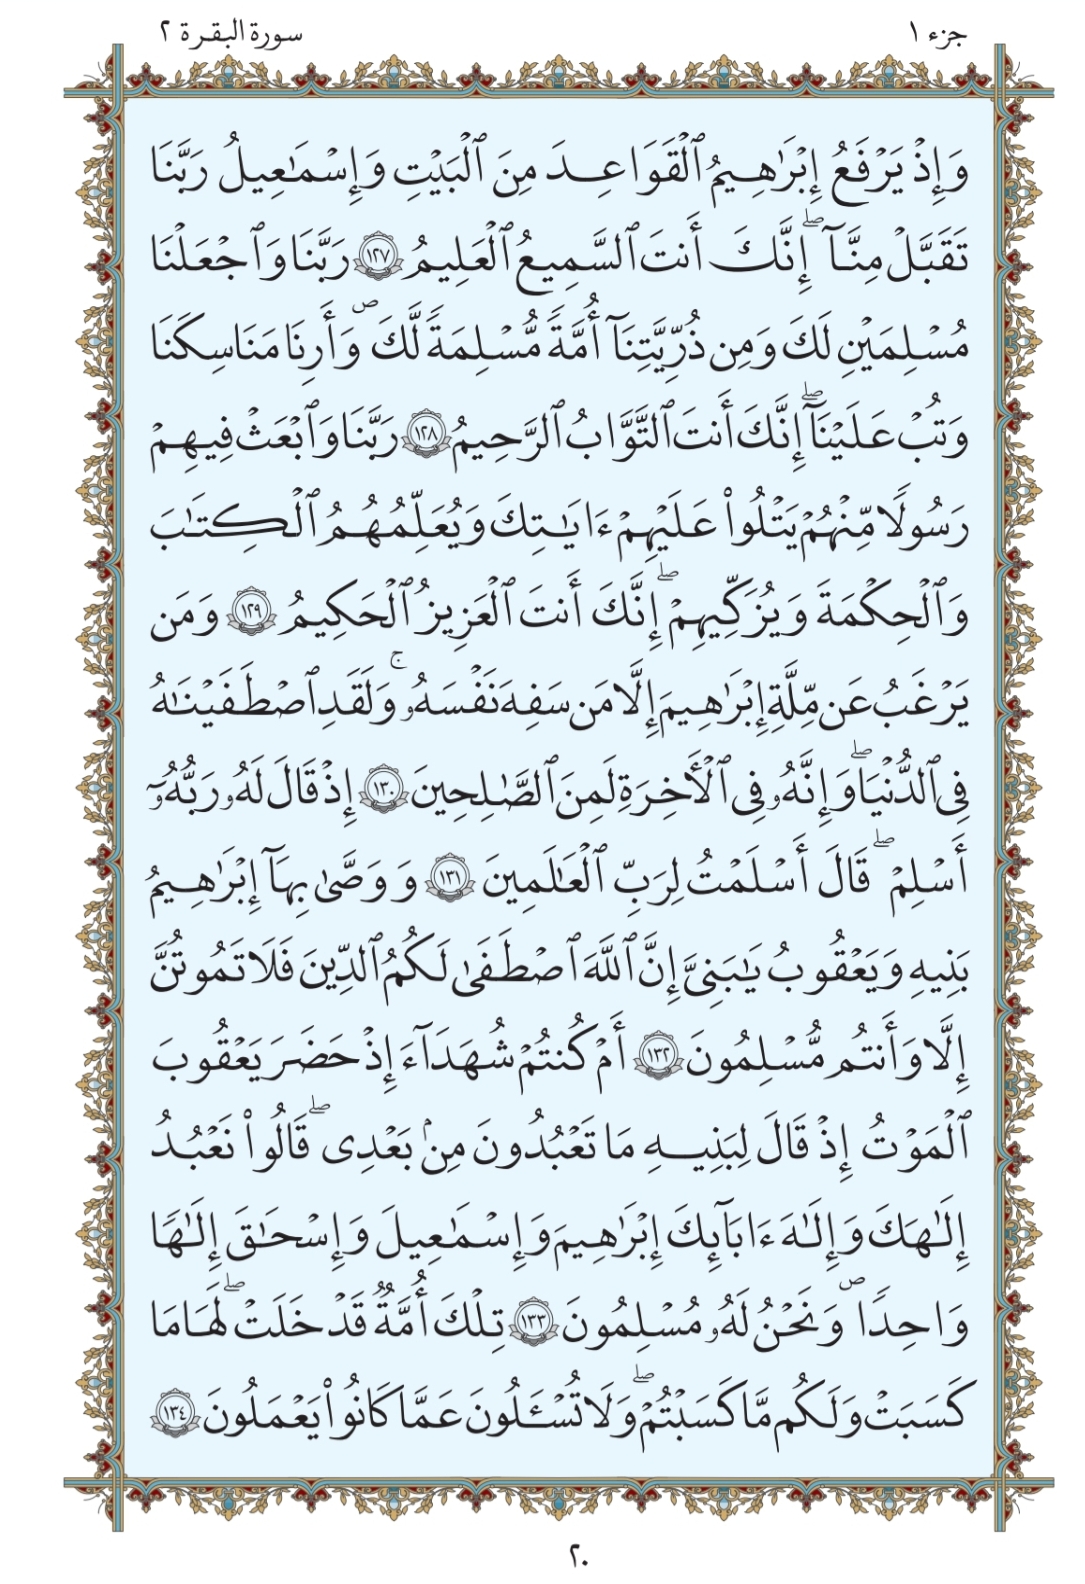 جزء ١
سورة البقرة ٢
وَإِذْ يَرْفَعُ إِبْرَٰهِيمُ ٱلْقَوَاعِدَ مِنَ ٱلْبَيْتِ وَإِسْمَٰعِيلُ رَبَّنَا
تَقَبَّلْ مِنَّآ ۖ إِنَّكَ أَنتَ ٱلسَّمِيعُ ٱلْعَلِيمُ ١٢٧ رَبَّنَا وَٱجْعَلْنَا
مُسْلِمَيْنِ لَكَ وَمِن ذُرِّيَّتِنَآ أُمَّةً مُّسْلِمَةً لَّكَ ۖ وَأَرِنَا مَنَاسِكَنَا
وَتُبْ عَلَيْنَآ ۖ إِنَّكَ أَنتَ ٱلتَّوَّابُ ٱلرَّحِيمُ ١٢٨ رَبَّنَا وَٱبْعَثْ فِيهِمْ
رَسُولًا مِّنْهُمْ يَتْلُوا۟ عَلَيْهِمْ ءَايَٰتِكَ وَيُعَلِّمُهُمُ ٱلْكِتَٰبَ
وَٱلْحِكْمَةَ وَيُزَكِّيهِمْ ۖ إِنَّكَ أَنتَ ٱلْعَزِيزُ ٱلْحَكِيمُ ١٢٩ وَمَن
يَرْغَبُ عَن مِّلَّةِ إِبْرَٰهِيمَ إِلَّا مَن سَفِهَ نَفْسَهُۥ ۚ وَلَقَدِ ٱصْطَفَيْنَٰهُ
فِى ٱلدُّنْيَا ۖ وَإِنَّهُۥ فِى ٱلْأَخِرَةِ لَمِنَ ٱلصَّٰلِحِينَ ١٣٠ إِذْ قَالَ لَهُۥ رَبُّهُۥٓ
أَسْلِمْ ۖ قَالَ أَسْلَمْتُ لِرَبِّ ٱلْعَٰلَمِينَ ١٣١ وَوَصَّىٰ بِهَآ إِبْرَٰهِيمُ
بَنِيهِ وَيَعْقُوبُ يَٰبَنِىَّ إِنَّ ٱللَّهَ ٱصْطَفَىٰ لَكُمُ ٱلدِّينَ فَلَا تَمُوتُنَّ
إِلَّا وَأَنتُم مُّسْلِمُونَ ١٣٢ أَمْ كُنتُمْ شُهَدَآءَ إِذْ حَضَرَ يَعْقُوبَ
ٱلْمَوْتُ إِذْ قَالَ لِبَنِيهِ مَا تَعْبُدُونَ مِنۢ بَعْدِى ۖ قَالُوا۟ نَعْبُدُ
إِلَٰهَكَ وَإِلَٰهَ ءَابَآئِكَ إِبْرَٰهِيمَ وَإِسْمَٰعِيلَ وَإِسْحَٰقَ إِلَٰهًا
وَاحِدًا ۖ وَنَحْنُ لَهُۥ مُسْلِمُونَ ١٣٣ تِلْكَ أُمَّةٌ قَدْ خَلَتْ ۖ لَهَا مَا
كَسَبَتْ وَلَكُم مَّا كَسَبْتُمْ ۖ وَلَا تُسْـَٔلُونَ عَمَّا كَانُوا۟ يَعْمَلُونَ ١٣٤
٢٠